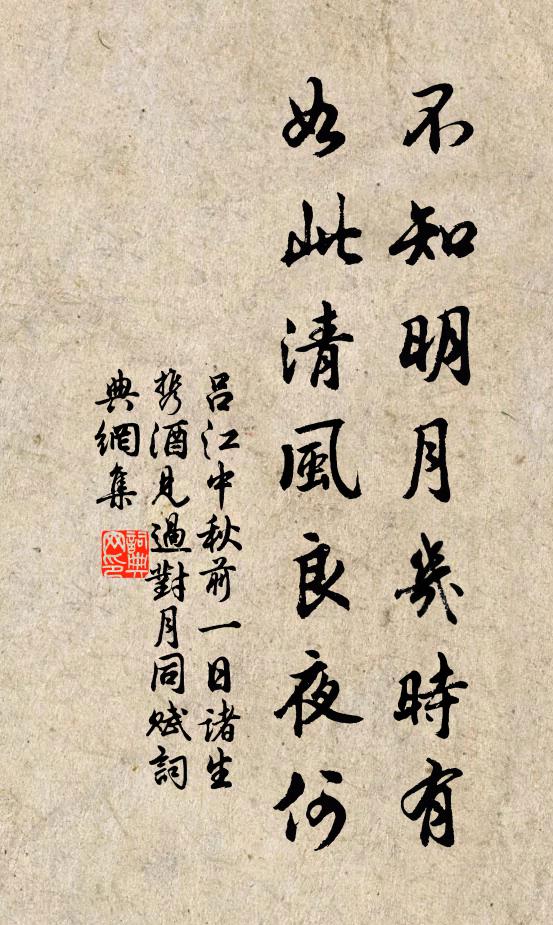 不知明月幾時有
如此清風良夜何
呂江中秋前一日諸生
携酒見過對月同賦詞
典網集
詞典網印